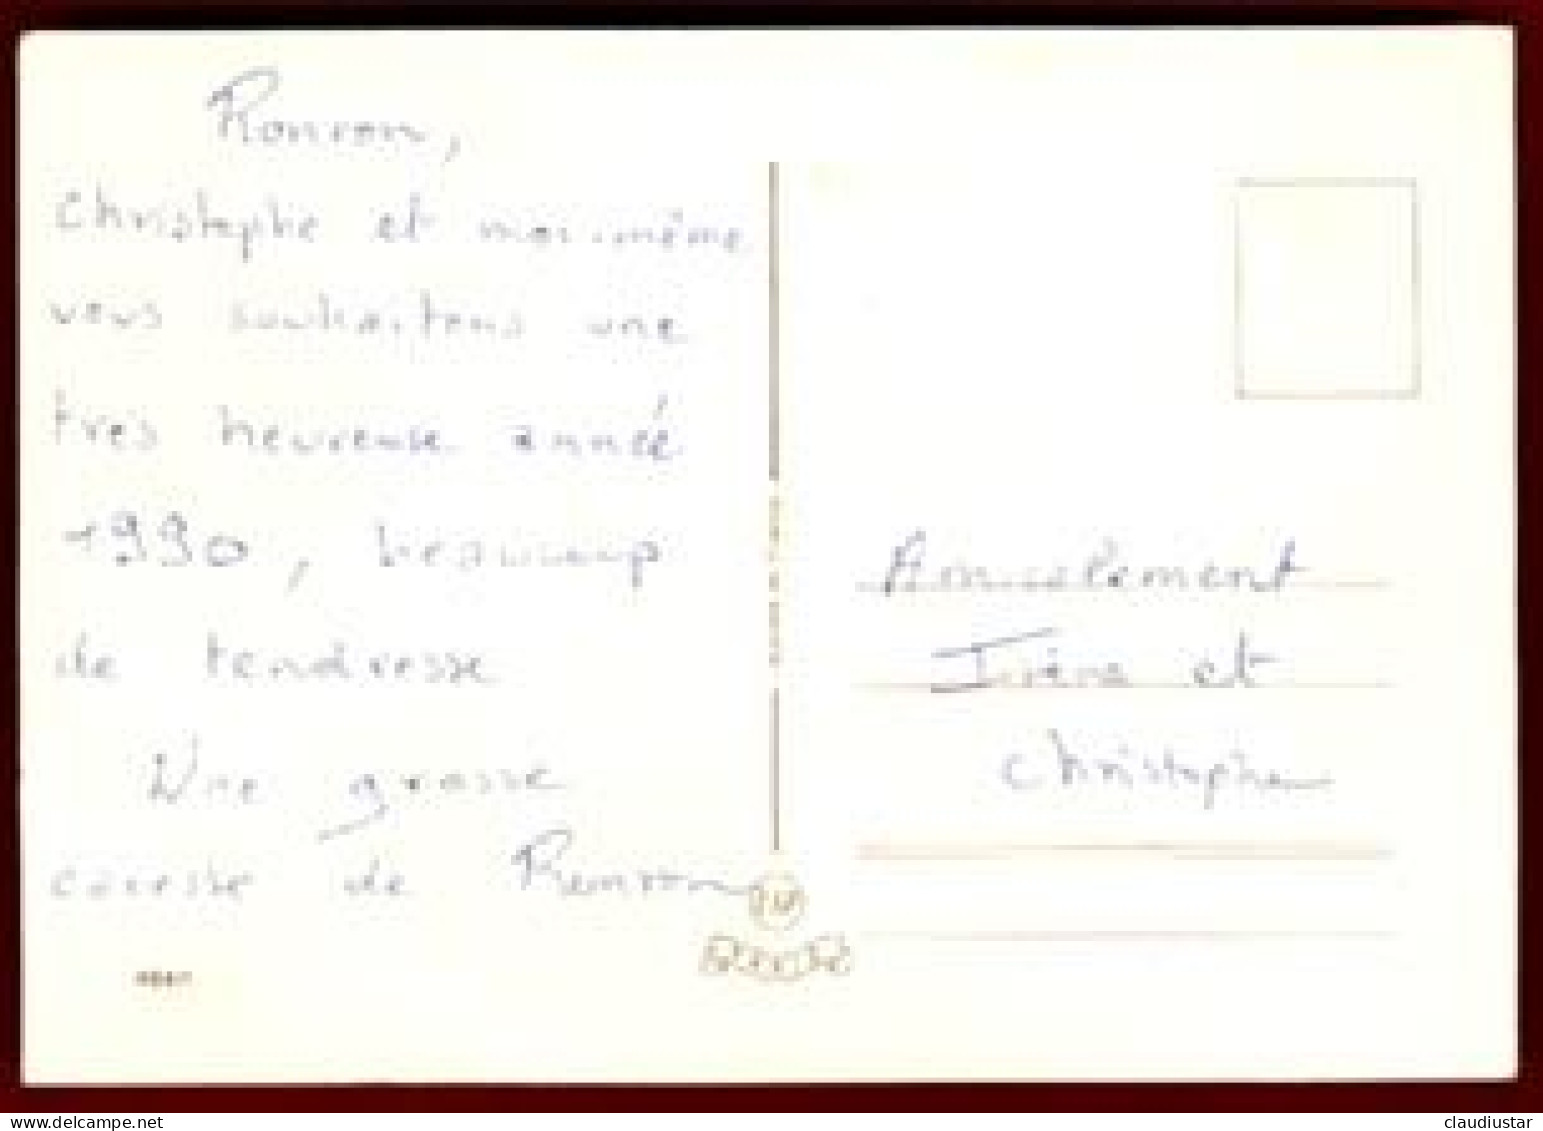 Ronron,
Christophe et moi-même
vous souhaitons une
très heureuse année
1990, beaucoup
de tendresse
Une grosse
caresse de Ronron
Amicalement
Irène et
Christophe
www.delcampe.net
claudiustar